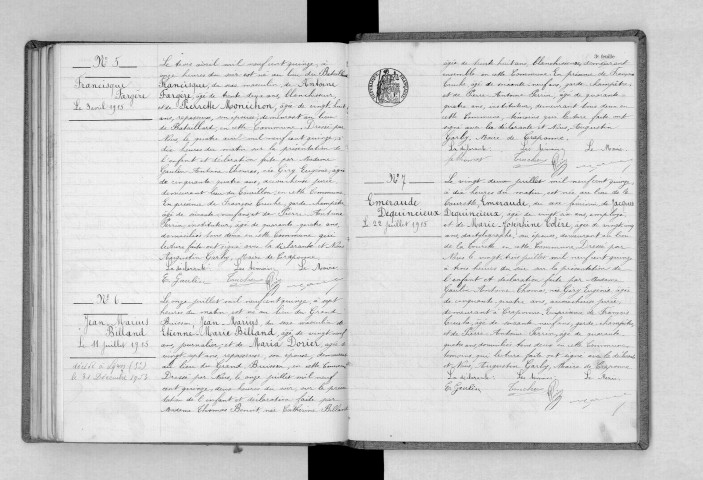 N° 5
Francisque
Fargère
Le 3 avril 1915
Le trois avril mil neuf cent quinze, à
onze heures du soir est né au lieu du
Francisque, du sexe masculin, de Antoine
Fargère, âgé de trente deux ans,
et de Pierrette Monichon, âgée de vingt huit
ans, repasseuse, son épouse, demeurant au lieu
de en cette Commune, Dressé par
Nous, le quatre avril mil neuf cent quinze, à
dix heures du matin sur la présentation de
l'enfant et déclaration faite par Madame
Gaulin Antoine Thomas, née Géry Eugénie, âgée
de cinquante quatre ans, accoucheuse jurée
demeurant lieu du en cette commune.
En présence de François garde champêtre
âgé de soixante neuf ans et de Pierre Antoine
Perrin, instituteur, âgé de quarante quatre ans,
domiciliés tous deux en cette Commune qui
lecture faite ont signé avec la déclarante et Nous
Augustin Garby, Maire de Craponne.
La déclarante Les témoins Le Maire
E. Gaulin
N° 6
Jean Marius
Billand
Le 11 juillet 1915
décédé à Lyon (5e)
le 30 décembre 1953
Le onze juillet mil neuf cent quinze, à sept
heures du matin, est né au lieu du Grand
Buisson, Jean Marius, du sexe masculin de
Etienne Marie Billand, âgé de vingt neuf
ans, journalier, et de Maria Dorier, âgée de
vingt sept ans, repasseuse, son épouse, demeurant
au lieu du Grand Buisson, en cette Commune
Dressé par Nous, le onze juillet mil neuf
cent quinze, deux heures du soir, sur la présen
tation de l'enfant et déclaration faite par
Madame Thomas Benoît, née Catherine Billand
âgée de trente huit ans, blanchisseuse, demeurant
ensemble en cette Commune. En présence de François
âgé de soixante neuf ans, garde champêtre
et de Pierre Antoine Perrin, âgé de quarante
quatre ans, instituteur, demeurant tous deux en
cette Commune, témoins qui lecture faite ont
signé avec la déclarante et Nous, Augustin
Garby, Maire de Craponne.
La déclarante Les témoins Le Maire
N° 7
Emeraude
Dequincieux
Le 22 juillet 1915
Le vingt deux juillet mil neuf cent quinze,
à dix heures du matin, est née au lieu de la
Tourette, Emeraude, du sexe féminin de Jacques
Dequincieux, âgé de vingt six ans, employé
et de Marie Joséphine Colère, âgée de vingt cinq
ans, dactylographe, son épouse, demeurant au lieu
de la Tourette en cette Commune Dressé par
Nous le vingt trois juillet mil neuf cent quinze
à trois heures du soir sur la présentation de
l'enfant et déclaration faite par Madame
Gaulin Antoine Thomas, née Géry Eugénie âgée
de cinquante quatre ans, accoucheuse jurée,
demeurant à Craponne, En présence de François
âgé de soixante neuf ans, garde champêtre,
et de Pierre Antoine Perrin, âgé de quarante
quatre ans, domiciliés tous deux en cette Commune
témoins, qui lecture faite ont signé avec la déclarante
et Nous, Augustin Garby, Maire de Craponne
La déclarante Les témoins Le Maire
E. Gaulin